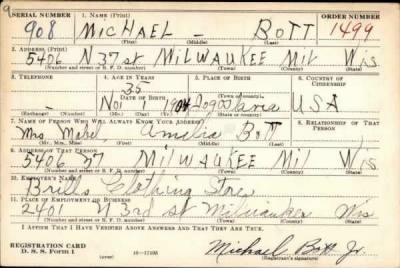 SERIAL NUMBER 1. NAME (Print) ORDER NUMBER
908 MICHAEL - BOTT 1499
(First) (Middle) (Last)
2. ADDRESS (Print)
5406 N 37 st MILWAUKEE Mil Wis
(Number and street or R. F. D. number) (Town) (County) (State)
3. TELEPHONE 4. AGE IN YEARS 5. PLACE OF BIRTH 6. COUNTRY OF CITIZENSHIP
35
DATE OF BIRTH
- Nov 1904 USA
(Exchange) (Number) (Mo.) (Day) (Yr.) (Town or county) (State or country)
7. NAME OF PERSON WHO WILL ALWAYS KNOW YOUR ADDRESS 8. RELATIONSHIP OF THAT PERSON
Mrs Mabel Amelia Bott
(Mr., Mrs., Miss) (First) (Middle) (Last)
9. ADDRESS OF THAT PERSON
5406 37 MILWAUKEE Mil Wis
(Number and street or R. F. D. number) (Town) (County) (State)
10. EMPLOYER'S NAME
Brills Clothing Store
11. PLACE OF EMPLOYMENT OR BUSINESS
2401 N 3rd st Milwaukee Wis
(Number and street or R. F. D. number) (Town) (County) (State)
I AFFIRM THAT I HAVE VERIFIED ABOVE ANSWERS AND THAT THEY ARE TRUE.
REGISTRATION CARD
D. S. S. FORM 1 (over) 16-17105 Michael Bott Jr.
(Registrant's signature)